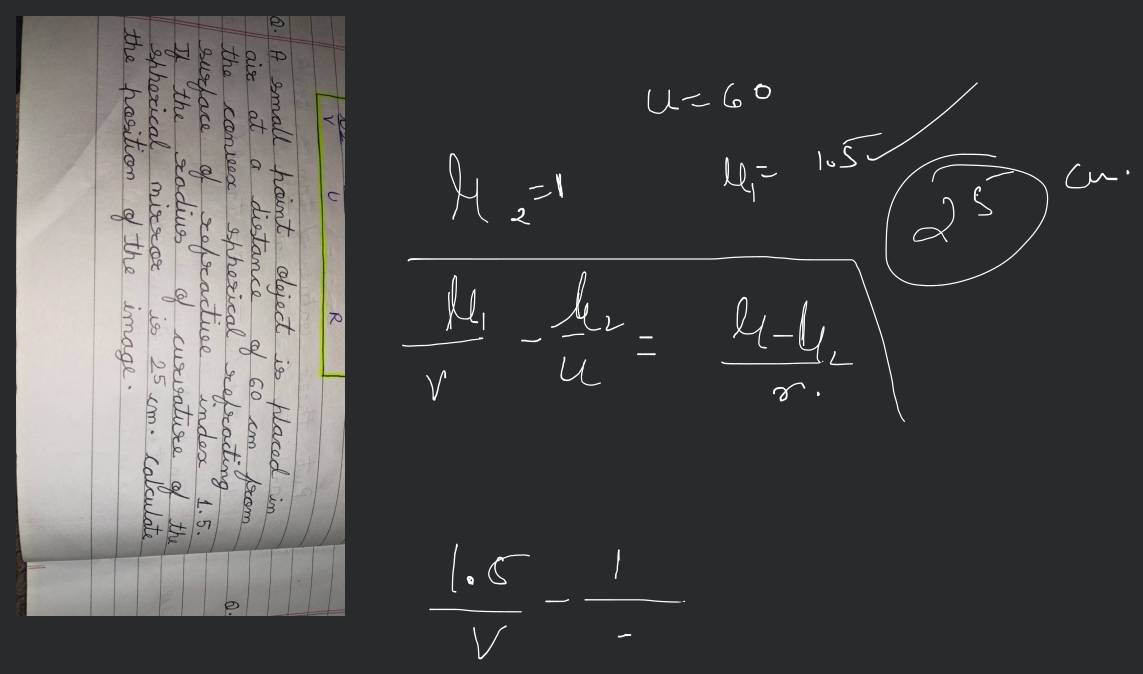 V U R
Q. A small point object is placed in
air at a distance of 60 cm from
the convex spherical refracting
surface of refractive index 1.5.
If the radius of curvature of the
spherical mirror is 25 cm. Calculate
the position of the image.
Q.
u = 60
μ₂ = 1
μ₁ = 1.5
25 cm.
μ₁/v - μ₂/u = μ-μ₂/r.
1.5/v - 1/-